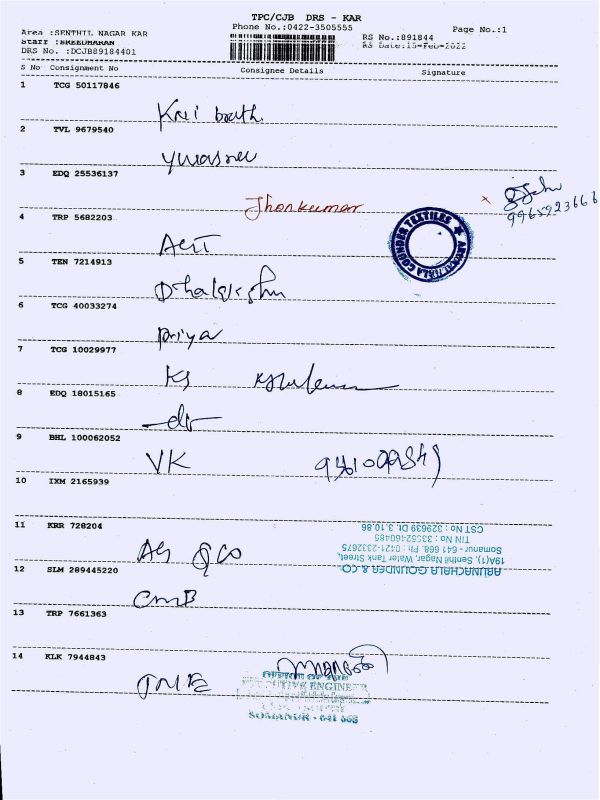 TPC/CJB DRS - KAR
Phone No.:0422-3505555
Area :SENTHIL NAGAR KAR
RS No.:891844
Page No.:1
Staff :SREEDHARAN
RS Date:15-Feb-2022
DRS No. :DCJB89184401
S No Consignment No Consignee Details Signature
1 TCG 50117846
2 TVL 9679540
3 EDQ 25536137
Jhonkumar
9965923666
4 TRP 5682203
ARUNACHALA GOUNDER TEXTILES
5 TEN 7214913
6 TCG 40033274
Priya
7 TCG 10029977
KS
8 EDQ 18015165
9 BHL 100062052
VK
10 IXM 2165939
11 KRR 728204
AG & CO
ARUNACHALA GOUNDER & CO
19A(1), Senthil Nagar, Water Tank Street,
Somanur - 641 668. Ph : 0421-2332675
TIN No : 33552460485
CST No : 329639 Dt. 3.10.86
12 SLM 289445220
CMB
13 TRP 7661363
14 KLK 7944843
OFFICE OF THE
EXECUTIVE ENGINEER
SOMANUR - 641 668